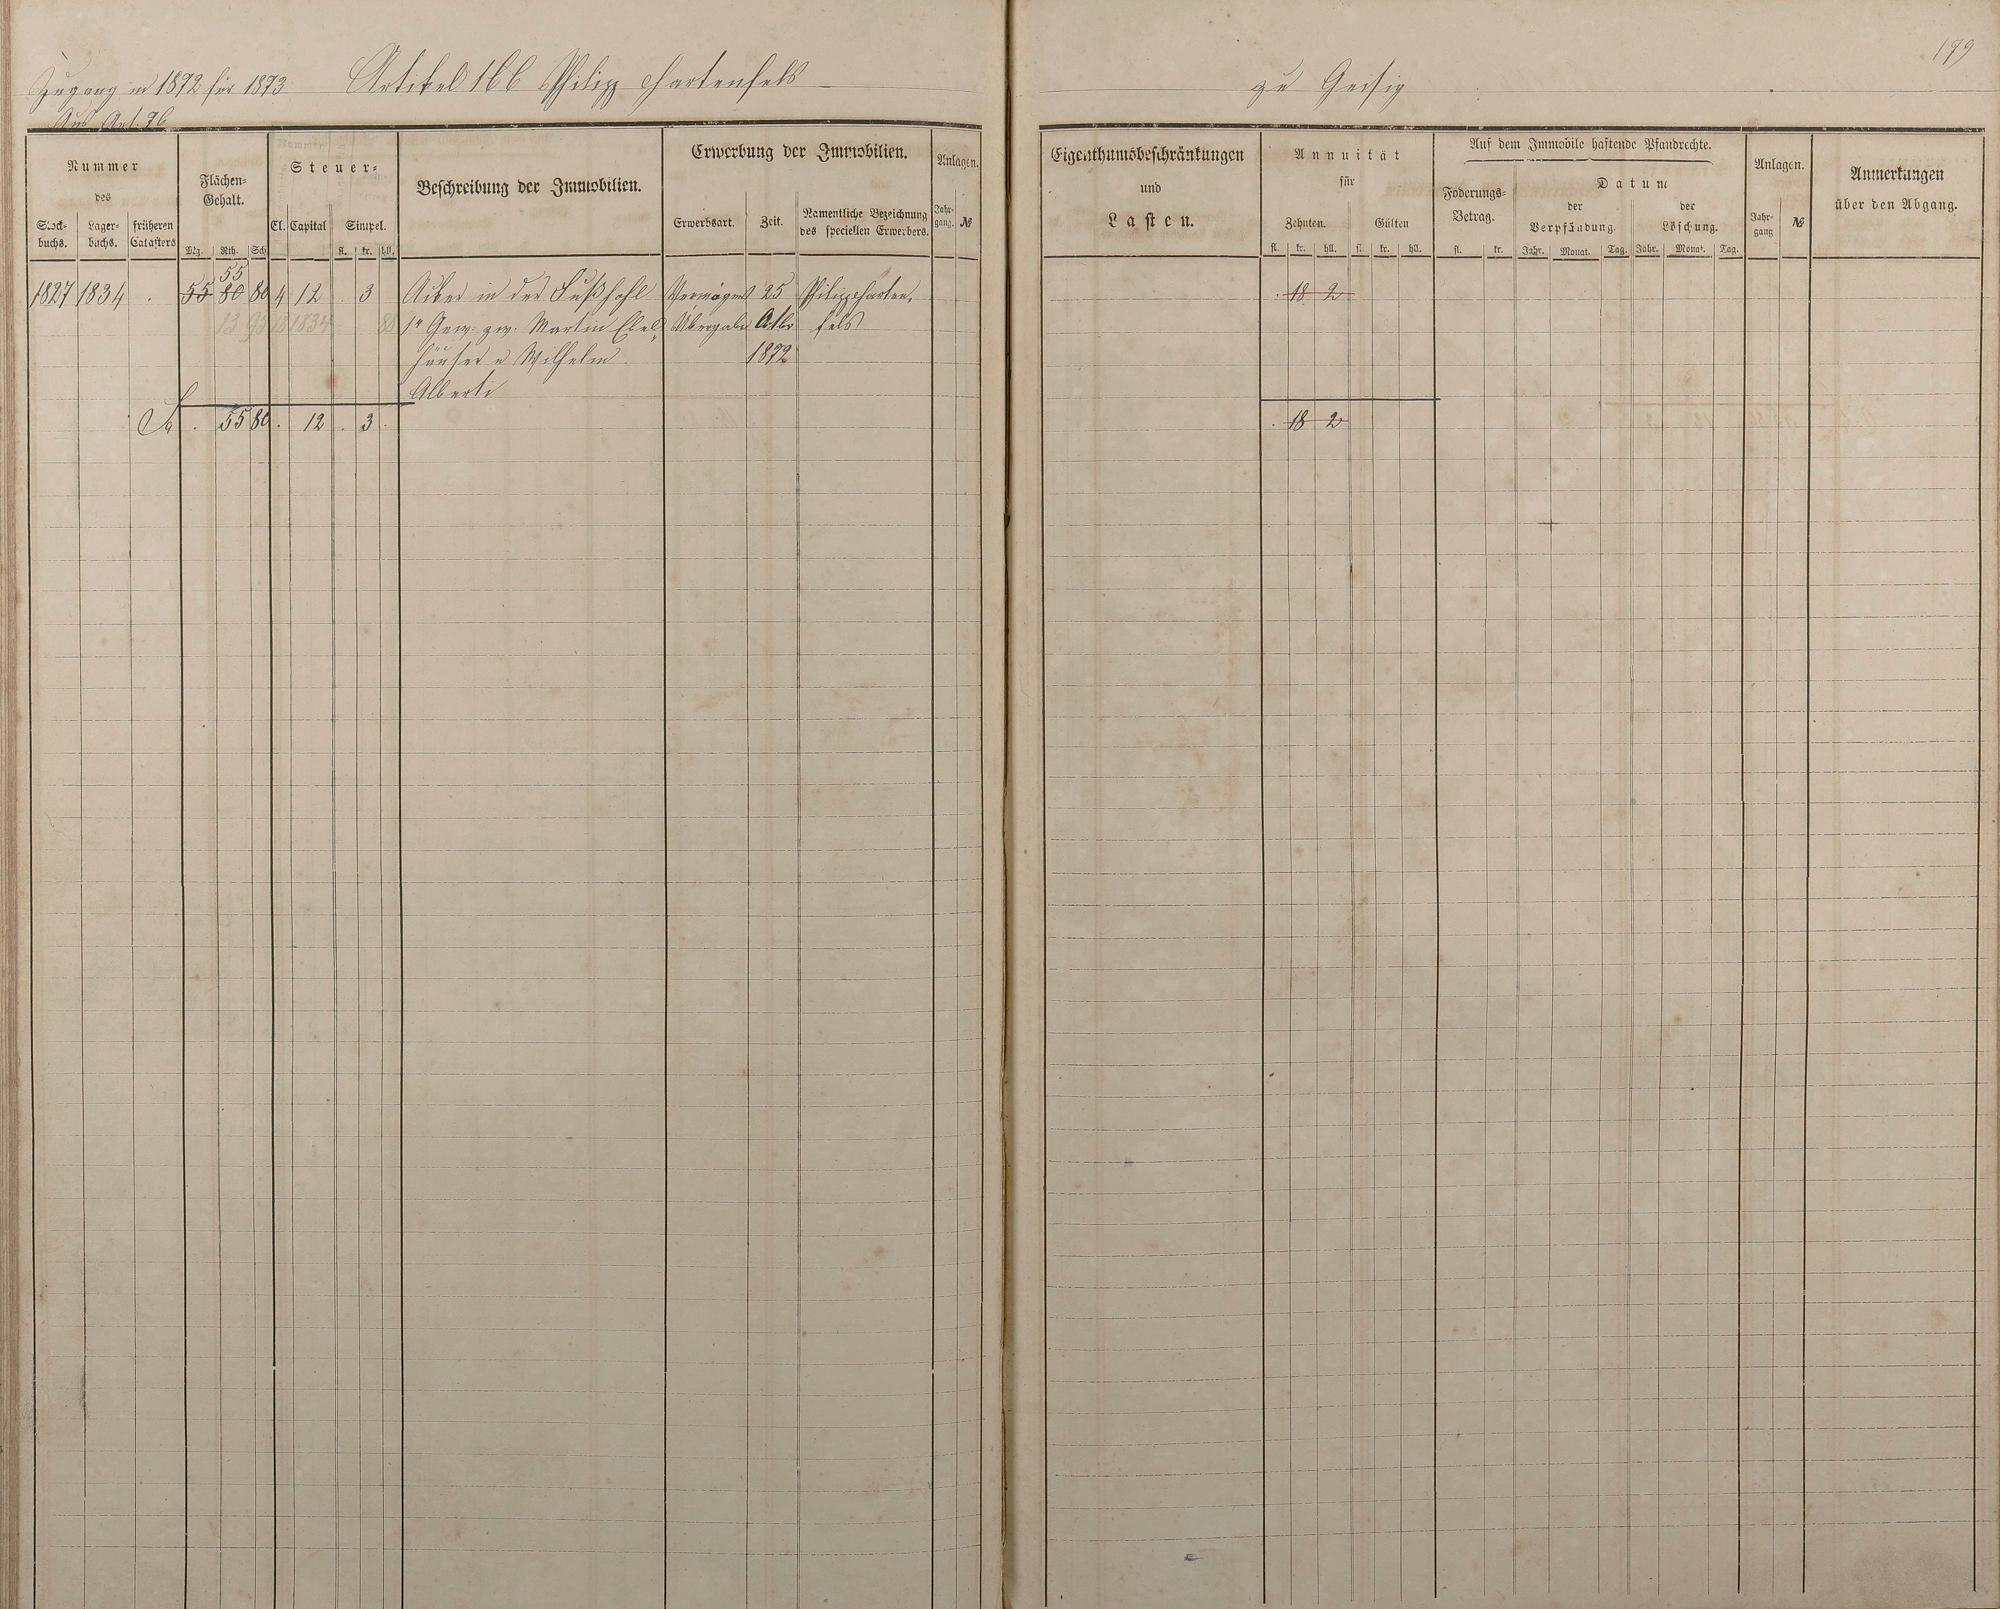 179
Zugang in 1872 für 1873 Artikel 166 Philipp Hartenfels zu Geisig
Aus Art. 76
Nummer
des
Stock-
buchs.
Lager-
buchs.
früheren
Catasters
Flächen-
Gehalt.
Mg. Rth. Sch
Steuer-
Cl. Capital Simpel.
fl. kr. hll.
Beschreibung der Immobilien.
Erwerbung der Immobilien.
Erwerbsart. Zeit.
Namentliche Bezeichnung
des speciellen Erwerbers.
Anlagen.
Jahr-
gang. №
Eigenthumsbeschränkungen
und
Lasten.
Annuität
für
Zehnten. Gülten
fl. kr. hll. fl. kr. hll.
Auf dem Immobile haftende Pfandrechte.
Foderungs-
Betrag.
fl. kr.
Datum
der
Verpfändung.
der
Löschung.
Jahr. Monat. Tag. Jahr. Monat. Tag.
Anlagen.
Jahr-
gang №
Anmerkungen
über den Abgang.
55
1827 1834 . 55 80 80 4 12 . 3 Acker in der Fußhohl Vermögens 25 Philipp Harten, . 18 2
1r Gew. zw. Martin Ebel, Übergabe Octbr fels
häuser u Wilhelm 1872
Alberti
Sa . 55 80 . 12 . 3 . . 18 2